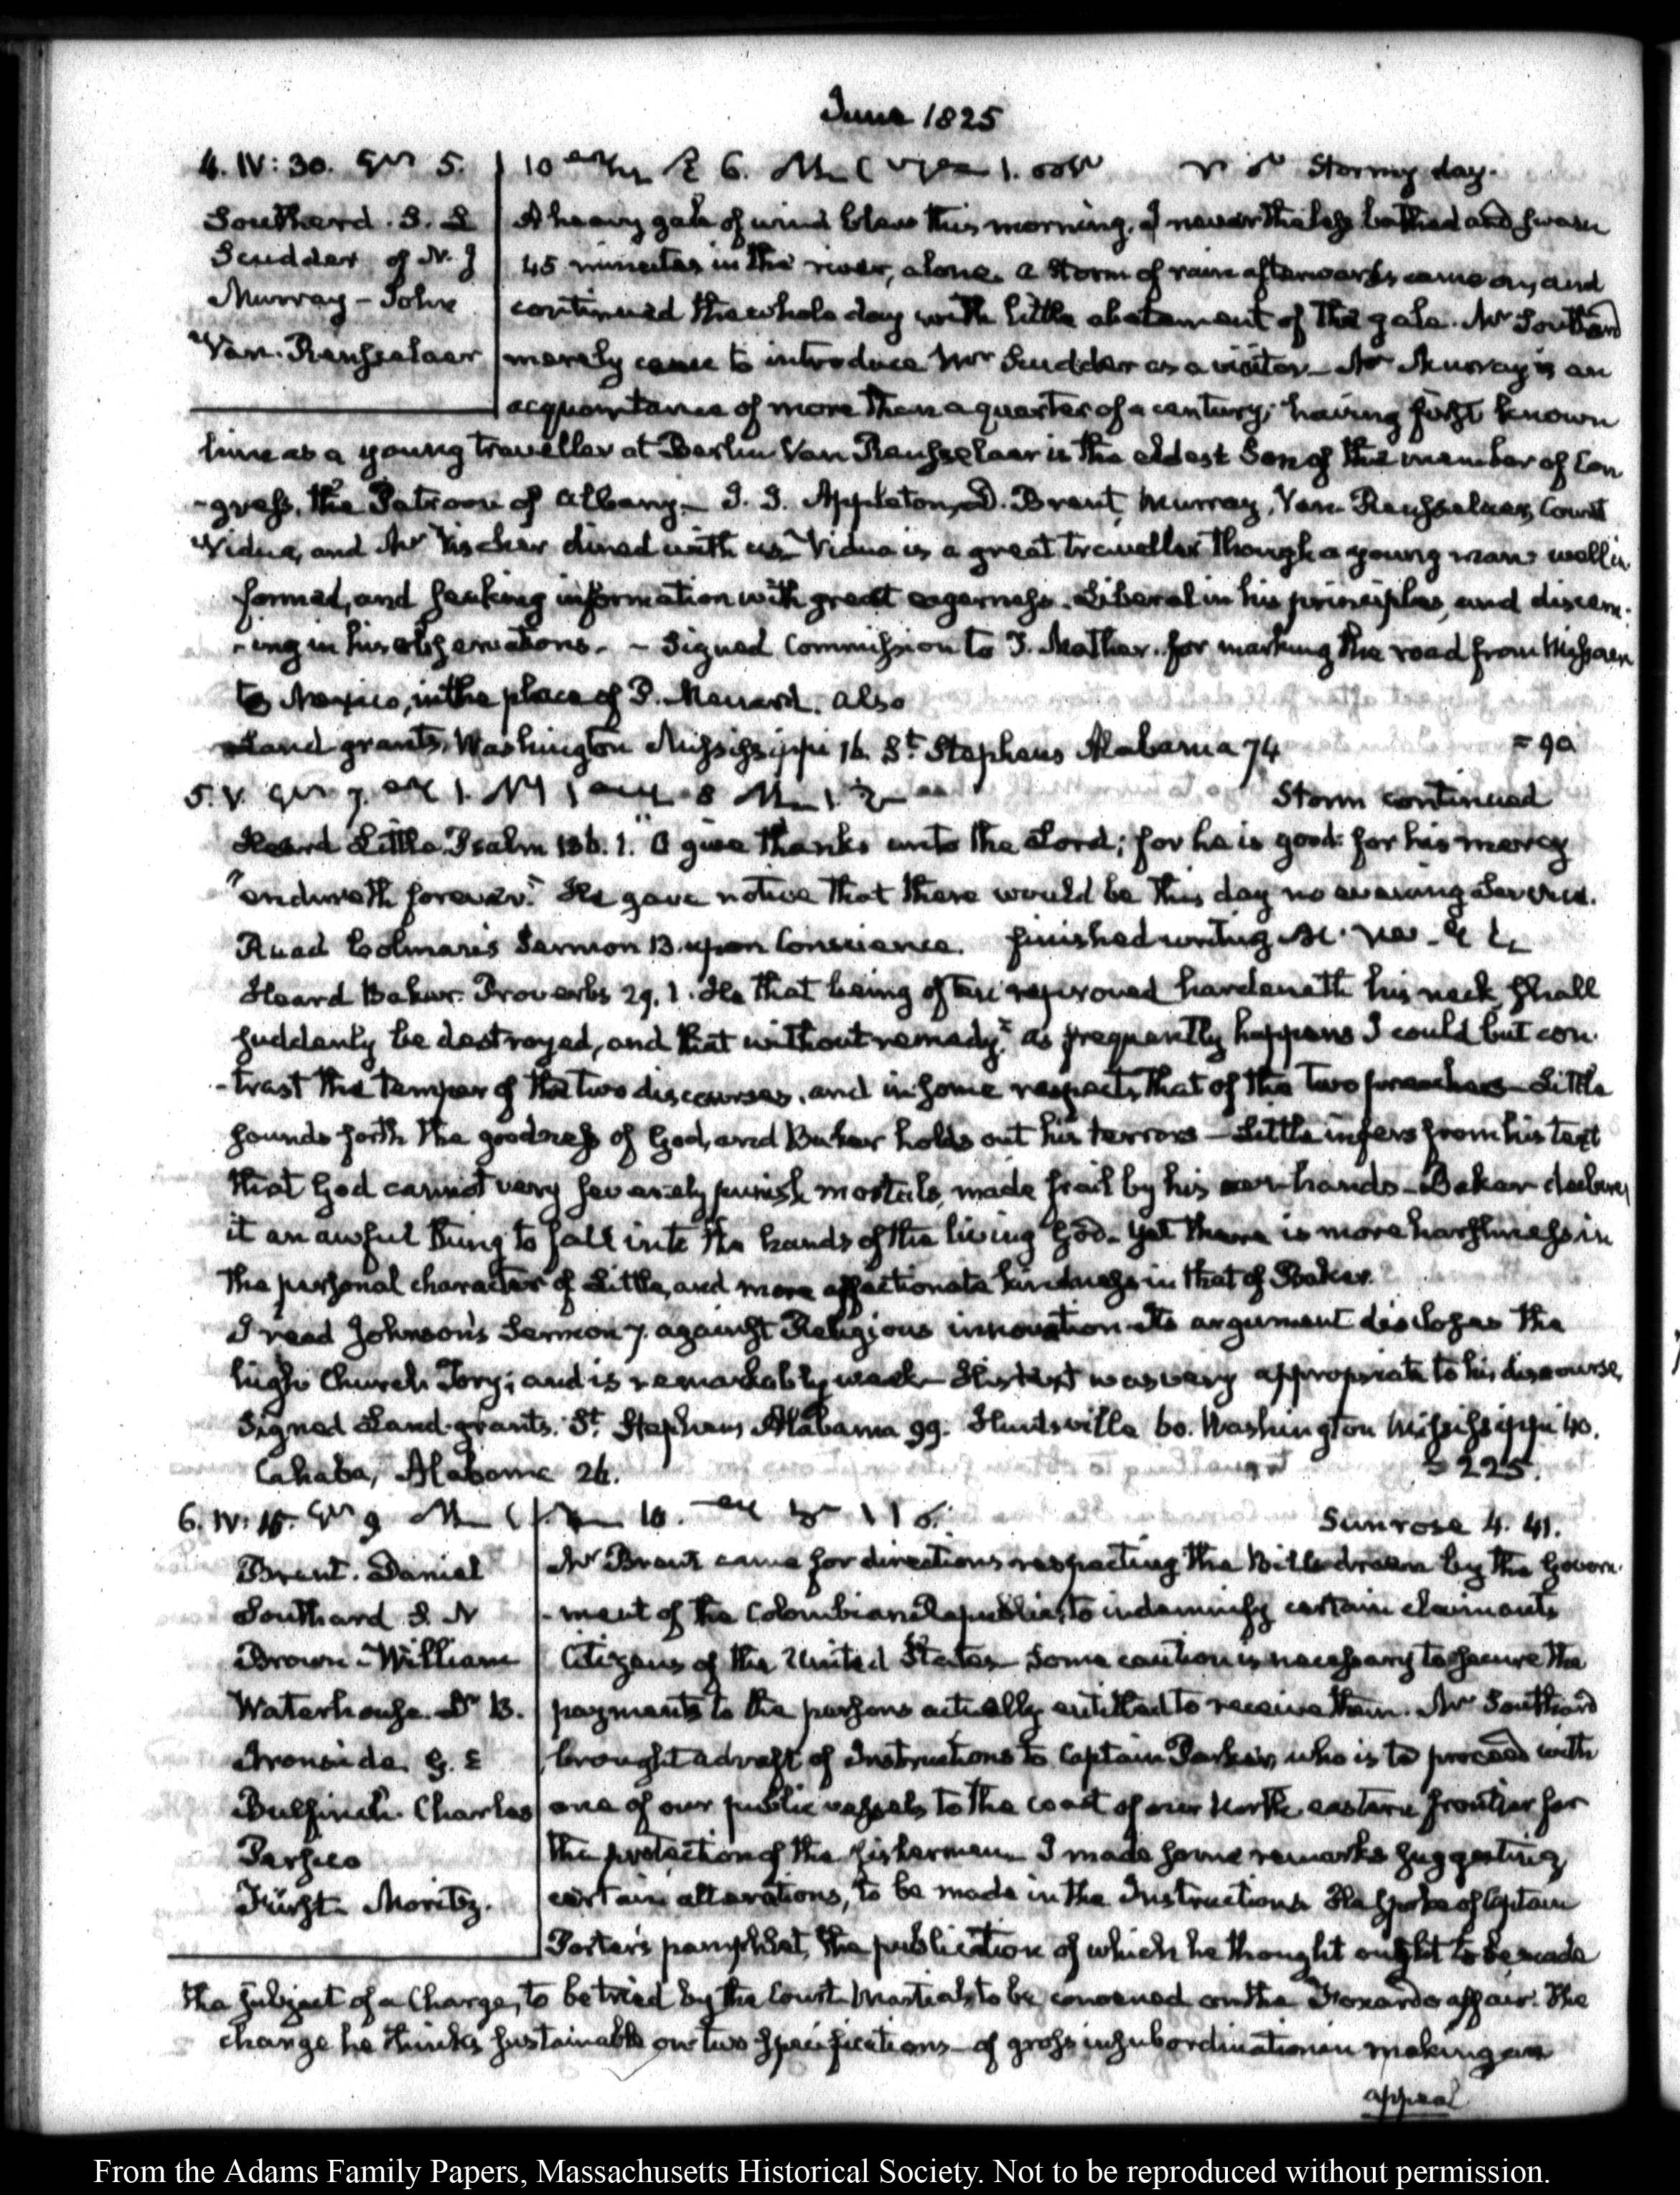 June 1825
4. IV: 30. 5. 10 6. 1. Stormy day.
Southard. S. L
Scudder of N. J
Murray - John
Van. Rensselaer
A heavy gale of wind blew this morning. I nevertheless bathed and swam
45 minutes in the river, alone. a Storm of rain afterwards came on, and
continued the whole day with little abatement of the gale. Mr Southard
merely came to introduce Mr Scudder as a visitor - Mr Murray is an
acquaintance of more than a quarter of a century; having first known
him as a young traveller at Berlin Van Rensselaer is the eldest Son of the member of Con
-gress, the Patroon of Albany - J. J. Appleton, D. Brent, Murray, Van Rensselaer, Count
Vidua, and Mr Vischer dined with us - Vidua is a great traveller though a young man: well in
formed, and seeking information with great eagerness. Liberal in his principles, and discern-
-ing in his observations. - Signed Commission to T. Mather. for marking the road from Missouri
to Mexico, in the place of P. Menard. also
Land grants, Washington Mississippi 16. St. Stephens Alabama 74 = 90
5. V. 7. 1. 8 1. Storm continued
Heard Little. Psalm 136. 1. "O give thanks unto the Lord; for he is good: for his mercy
"endureth forever." He gave notice that there would be this day no evening Service.
Read Colman's Sermon 13. upon Conscience. finished writing
Heard Baker. Proverbs 29. 1. He that being often reproved hardeneth his neck, shall
suddenly be destroyed, and that without remedy." as frequently happens I could but con-
-trast the temper of the two discourses, and in some respects that of the two preachers - Little
sounds forth the goodness of God, and Baker holds out his terrors - Little infers from his text
that God cannot very severely punish mortals, made frail by his own hands - Baker declares
it an awful thing to fall into the hands of the living God - yet there is more harshness in
the personal character of Little, and more affectionate kindness in that of Baker.
I read Johnson's Sermon 7. against Religious innovation Its argument discloses the
high Church Tory; and is remarkably weak - His text was very appropriate to his discourse,
Signed Land-grants. St. Stephens Alabama 99. Huntsville 60. Washington Mississippi 40.
Cahaba, Alabama 26. = 225.
6. IV: 15. 9 10. 6. Sun rose 4. 41.
Brent. Daniel
Southard S. L
Brown - William
Waterhouse. Dr B.
Ironside. G. E
Bulfinch. Charles
Persico
Fürst. Moritz.
Mr Brent came for directions respecting the Bills drawn by the Govern-
-ment of the Colombian Republic, to indemnify certain claimants
Citizens of the United States - Some caution is necessary to secure the
payments to the persons actually entitled to receive them. Mr Southard
brought a draft of Instructions to Captain Parker, who is to proceed with
one of our public vessels to the coast of our North eastern frontier for
the protection of the fishermen - I made some remarks suggesting
certain alterations, to be made in the Instructions He spoke of Captain
Porter's pamphlet, the publication of which he thought ought to be made
the Subject of a Charge, to be tried by the Court Martial, to be convened on the Foxardo affair. The
charge he thinks sustainable on two Specifications - of gross insubordination in making an
appeal
From the Adams Family Papers, Massachusetts Historical Society. Not to be reproduced without permission.